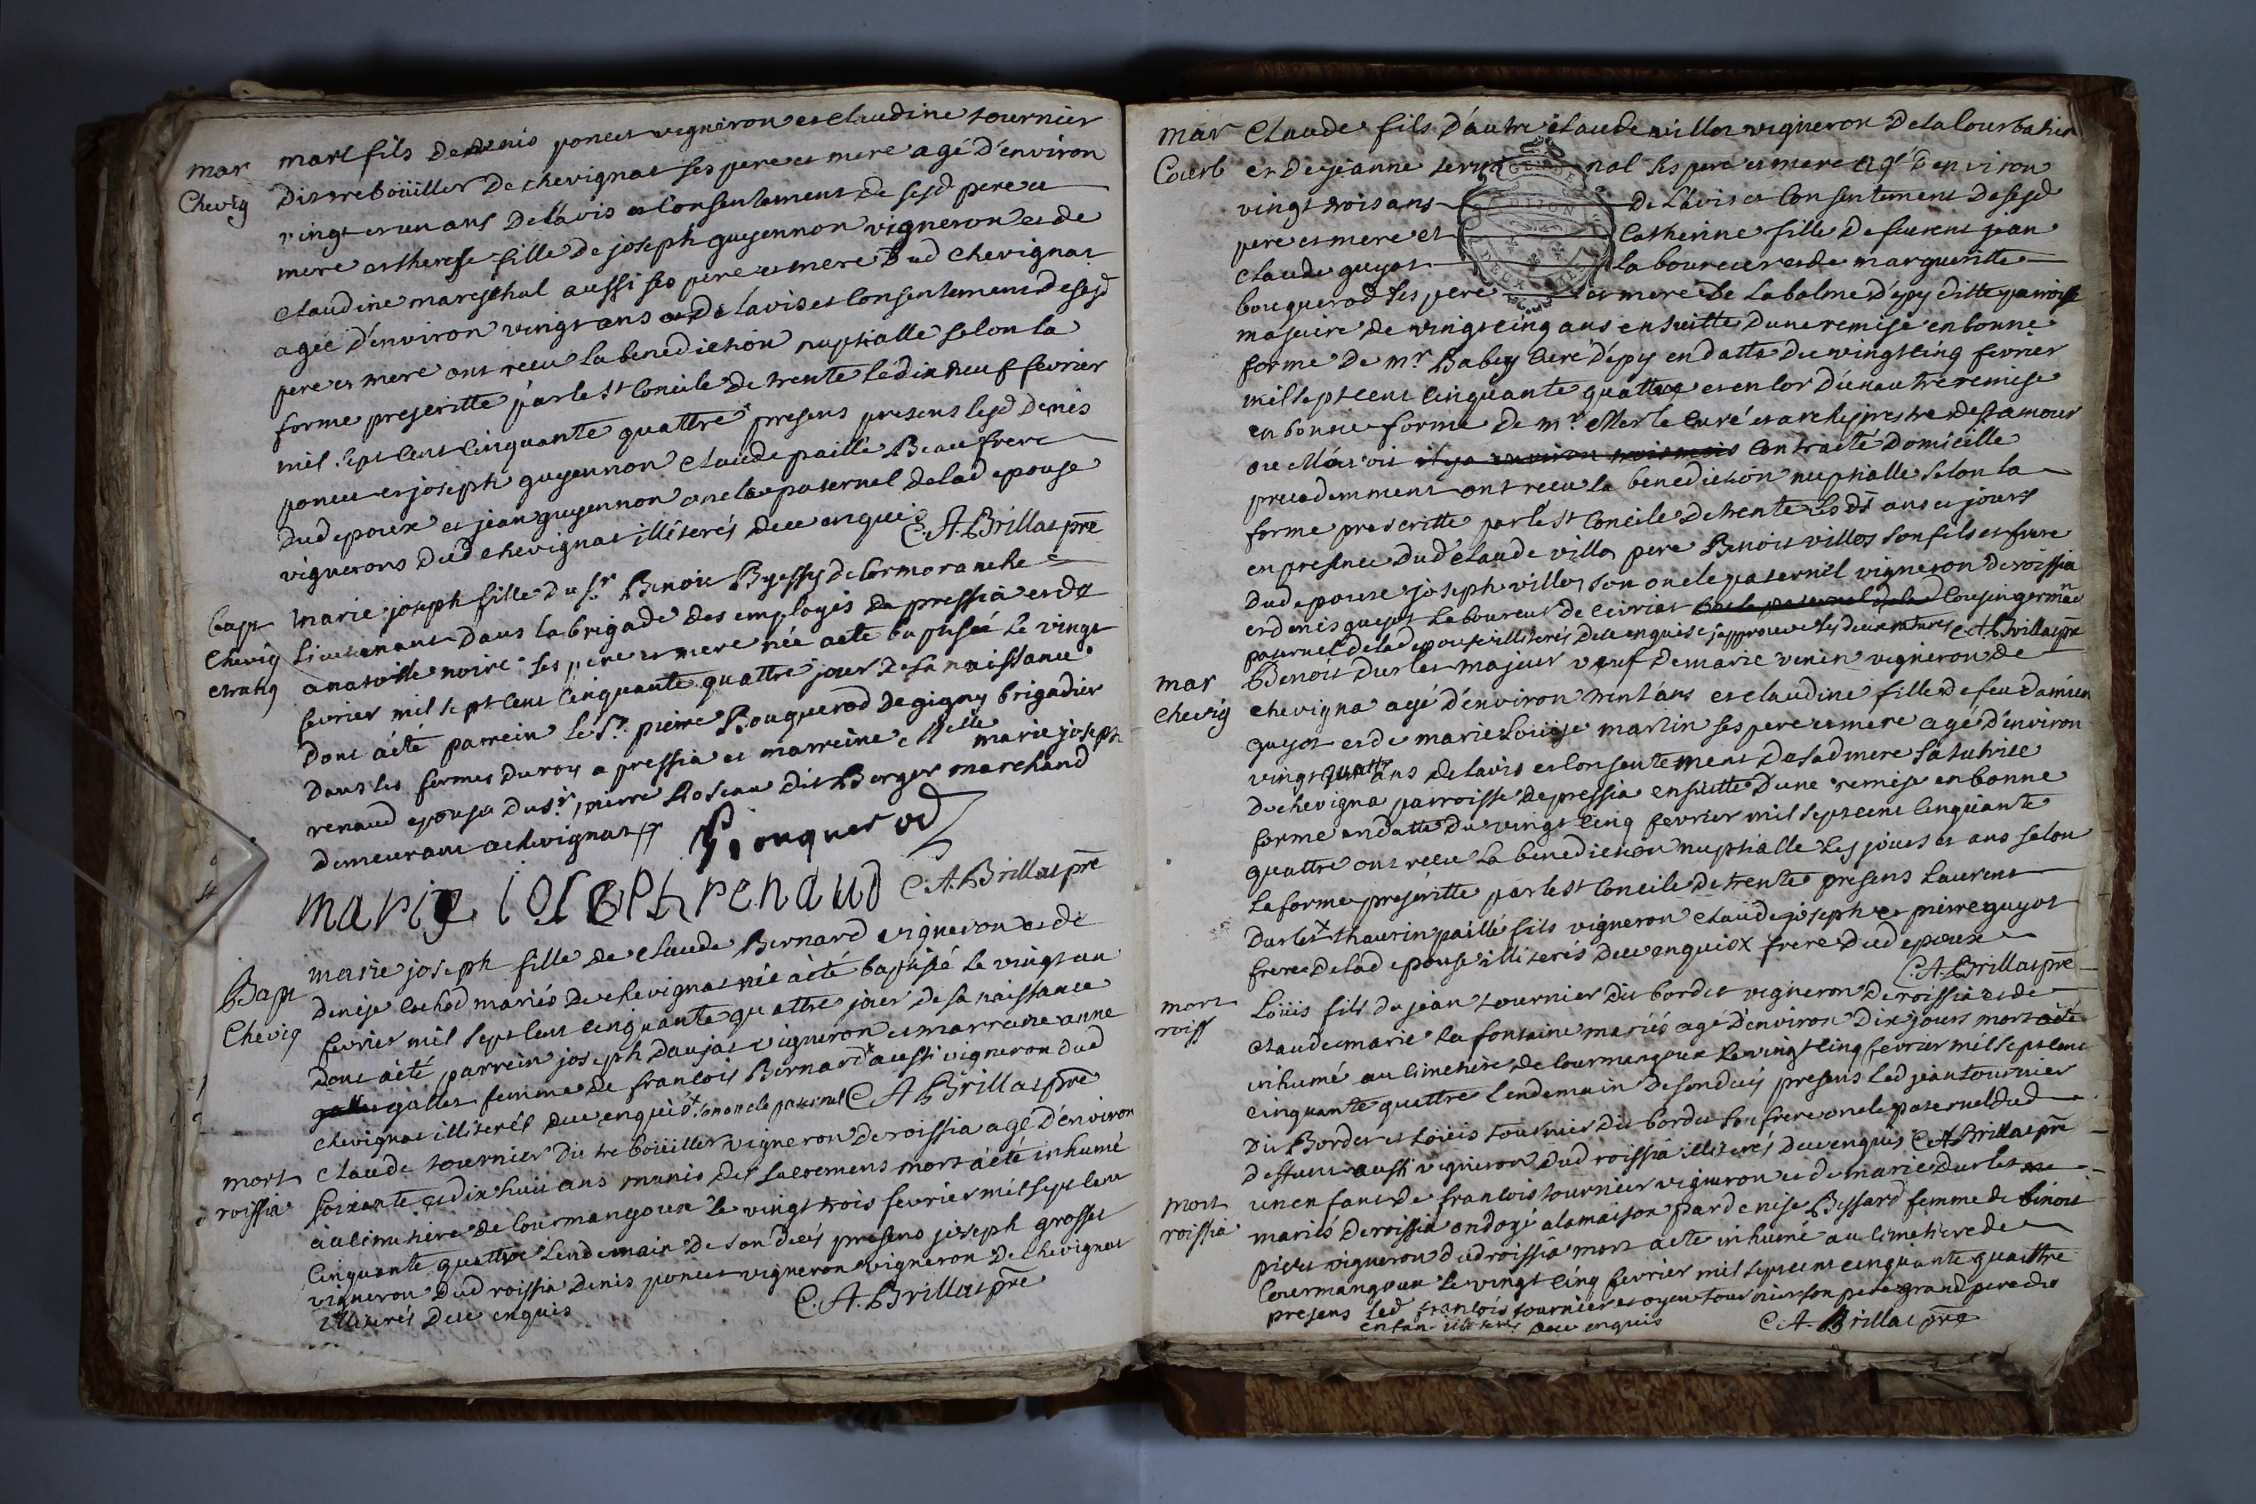 mar
Chevig
marc fils de denis poncet vigneron et claudine tournier
dit treboüiller de chevignat ses pere et mere agé d'environ
vingt et un ans de lavis et consentement de sesd pere et
mere et therese fille de joseph guyennon vigneron et de
claudine mareschal aussi ses pere et mere dud chevignat
agée d'environ vingt ans et de lavis et consentement de sesd
pere et mere ont recu la benediction nuptialle selon la
forme prescritte par le st concile de trente le dix neuf fevrier
mil sept cent cinquante quattre presens presens lesd denis
poncet et joseph guyennon claude paille beau frere
dud epoux et jean guyennon oncle paternel de lad epouse
vignerons dud chevignat illiterés de ce enquis C. A. Brillat pre
bapt
chevig
marie joseph fille du sr Benoit Byessy de Cormoranche
lieutenant dans la brigade des employés de pressia et de
ses pere et mere née a été baptisée le vingt
fevrier mil sept cent cinquante quattre jour de sa naissance
dont a été parrein le Sr pierre Bouquerod de gigny brigadier
dans les fermes du roy a pressia et marreine Melle marie joseph
renaud epouse du sr pierre Roseau dit Berger marchand
demeurant a chevignat
Bouquerod
marie ioseph renaud C. A. Brillat pre
Bapt
Chevig
marie joseph fille de claude Bernard vigneron et de
denise cochod mariés de chevignat née a été baptisée le vingt un
fevrier mil sept cent cinquante quattre jour de sa naissance
dont a été parrein joseph Daujat vigneron et marreine anne
gallet femme de francois Bernard aussi vigneron dud
chevignat illiterés de ce enquis x son oncle paternel C A Brillat pre
mort
roissia
claude tournier dit treboüiller vigneron de roissia agé d'environ
soixante et dix huit ans munis des sacremens mort a été inhumé
au cimetiere de Courmangoux le vingt trois fevrier mil sept cent
cinquante quattre lendemain de son decès presens joseph grosset
vigneron dud roissia denis poncet vigneron vigneron de chevignat
illiterés de ce enquis C. A. Brillat pre
mar
Courb
Claude fils d'autre claude villot vigneron de la Courbatier
et de jeanne nal ses pere et mere agé d'environ
vingt trois ans de lavis et consentement de sesd
pere et mere et Catherine fille de feurent jean
claude guyot laboureur et de marguerite
bouquerod ses pere et mere de la balme d'epy ditte parroisse
majeure de vingt cinq ans ensuitte dune remise en bonne
forme de mr Babey curé d'epy en datte du vingt cinq fevrier
mil sept cent cinquante quattre et encor d'une autre remise
en bonne forme de mr Merle curé et archiprestre de st amour
ou elle avoit il y a environ trois mois contracté domicille
precedemment ont recu la benediction nuptialle selon la
forme prescritte par le st concile de trente lesds ans et jours
en presence dud claude villot pere Benoit villot son fils et frere
dud epoux joseph villot son oncle paternel vigneron de roissia
et denis guyot laboureur de Cevriat cousin germain
paternel de lad epouse illiterés de ce enquis j'approuve les deux ratures C A Brillat pre
mar
chevig
Benoit Durlet majeur veuf de marie venin vigneron de
chevigna agé d'environ trent'ans et claudine fille de feu damien
guyot et de marie Loüise martin ses pere et mere agé d'environ
vingt quattr ans de lavis et consentement de sad mere sa tutrice
de chevigna parroisse de pressia ensuitte dune remise en bonne
forme en datte du vingt cinq fevrier mil sept cent cinquante
quattre ont recu la benediction nuptialle les jours et ans selon
la forme prescritte par le st concile de trente presens Laurent
Durlet x thaurin paillé fils vigneron claude joseph et pierre guyot
freres de lad epouse illiterés de ce enquis x frere dud epoux
C. A. Brillat pre
mort
roiss
Loüis fils de jean tournier dit bordet vigneron de roissia et de
claude marie la fontaine mariés agé d'environ dix jours mort a été
inhumé au cimetiere de Courmangoux le vingt cinq fevrier mil sept cent
cinquante quattre lendemain de son decès presens led jean tournier
dit Bordet et Loüis tournier dit bordet son frere oncle paternel dud
deffunt aussi vigneron dud roissia illiterés de ce enquis C A Brillat pre
mort
roissia
un enfant de francois tournier vigneron et de marie Durlet
mariés de roissia ondoyé a la maison par denise Bessard femme de benoit
vigneron dud roissia mort a été inhumé au cimetiere de
Courmangoux le vingt cinq fevrier mil sept cent cinquante quattre
presens led francois tournier et oyen tournier son pere grand pere de
enfan illiterés de ce enquis C. A. Brillat pre